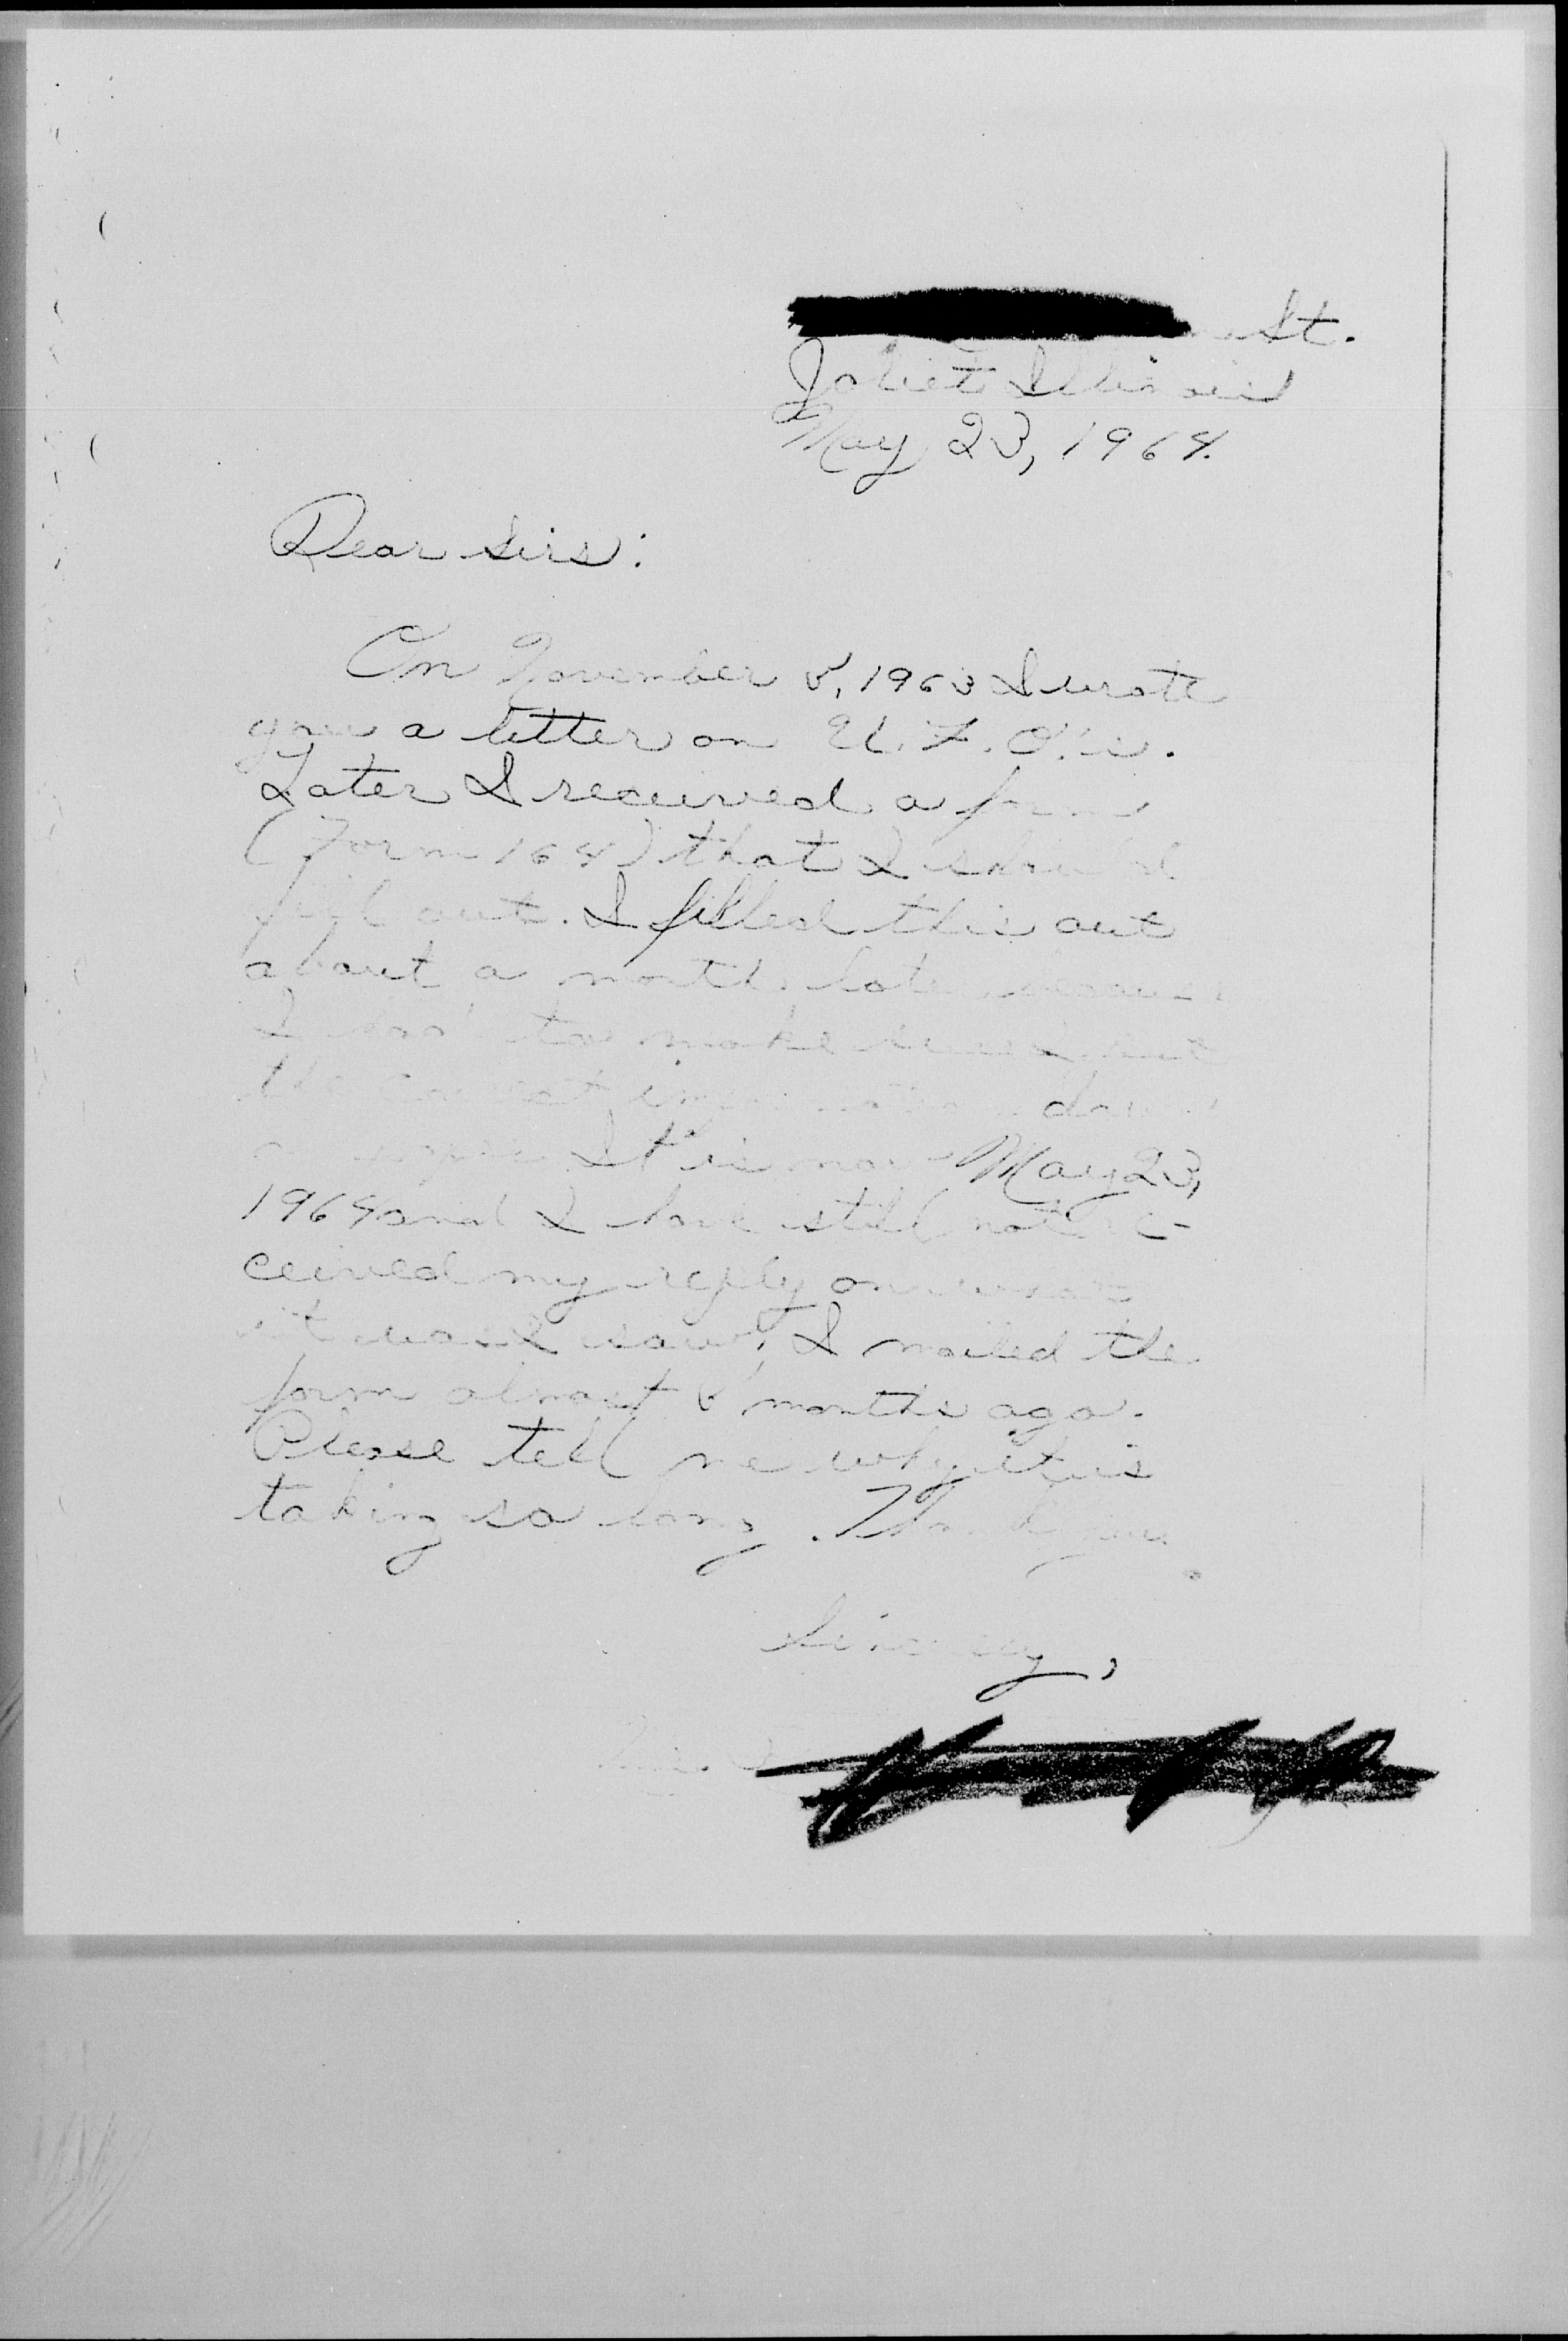 St.
Joliet Illinois
May 23, 1964.
Dear Sirs:
On November 5, 1963 I wrote
you a letter on U.F.O.'s.
Later I received a form
(Form 164) that I should
fill out. I filled this out
about a month later because
I had to make sure I put
the correct information down
It is now May 23,
1964 and I have still not re-
ceived my reply on what
it was I saw. I mailed the
form almost months ago.
Please tell me why it is
taking so long. Thank you.
Sincerely,